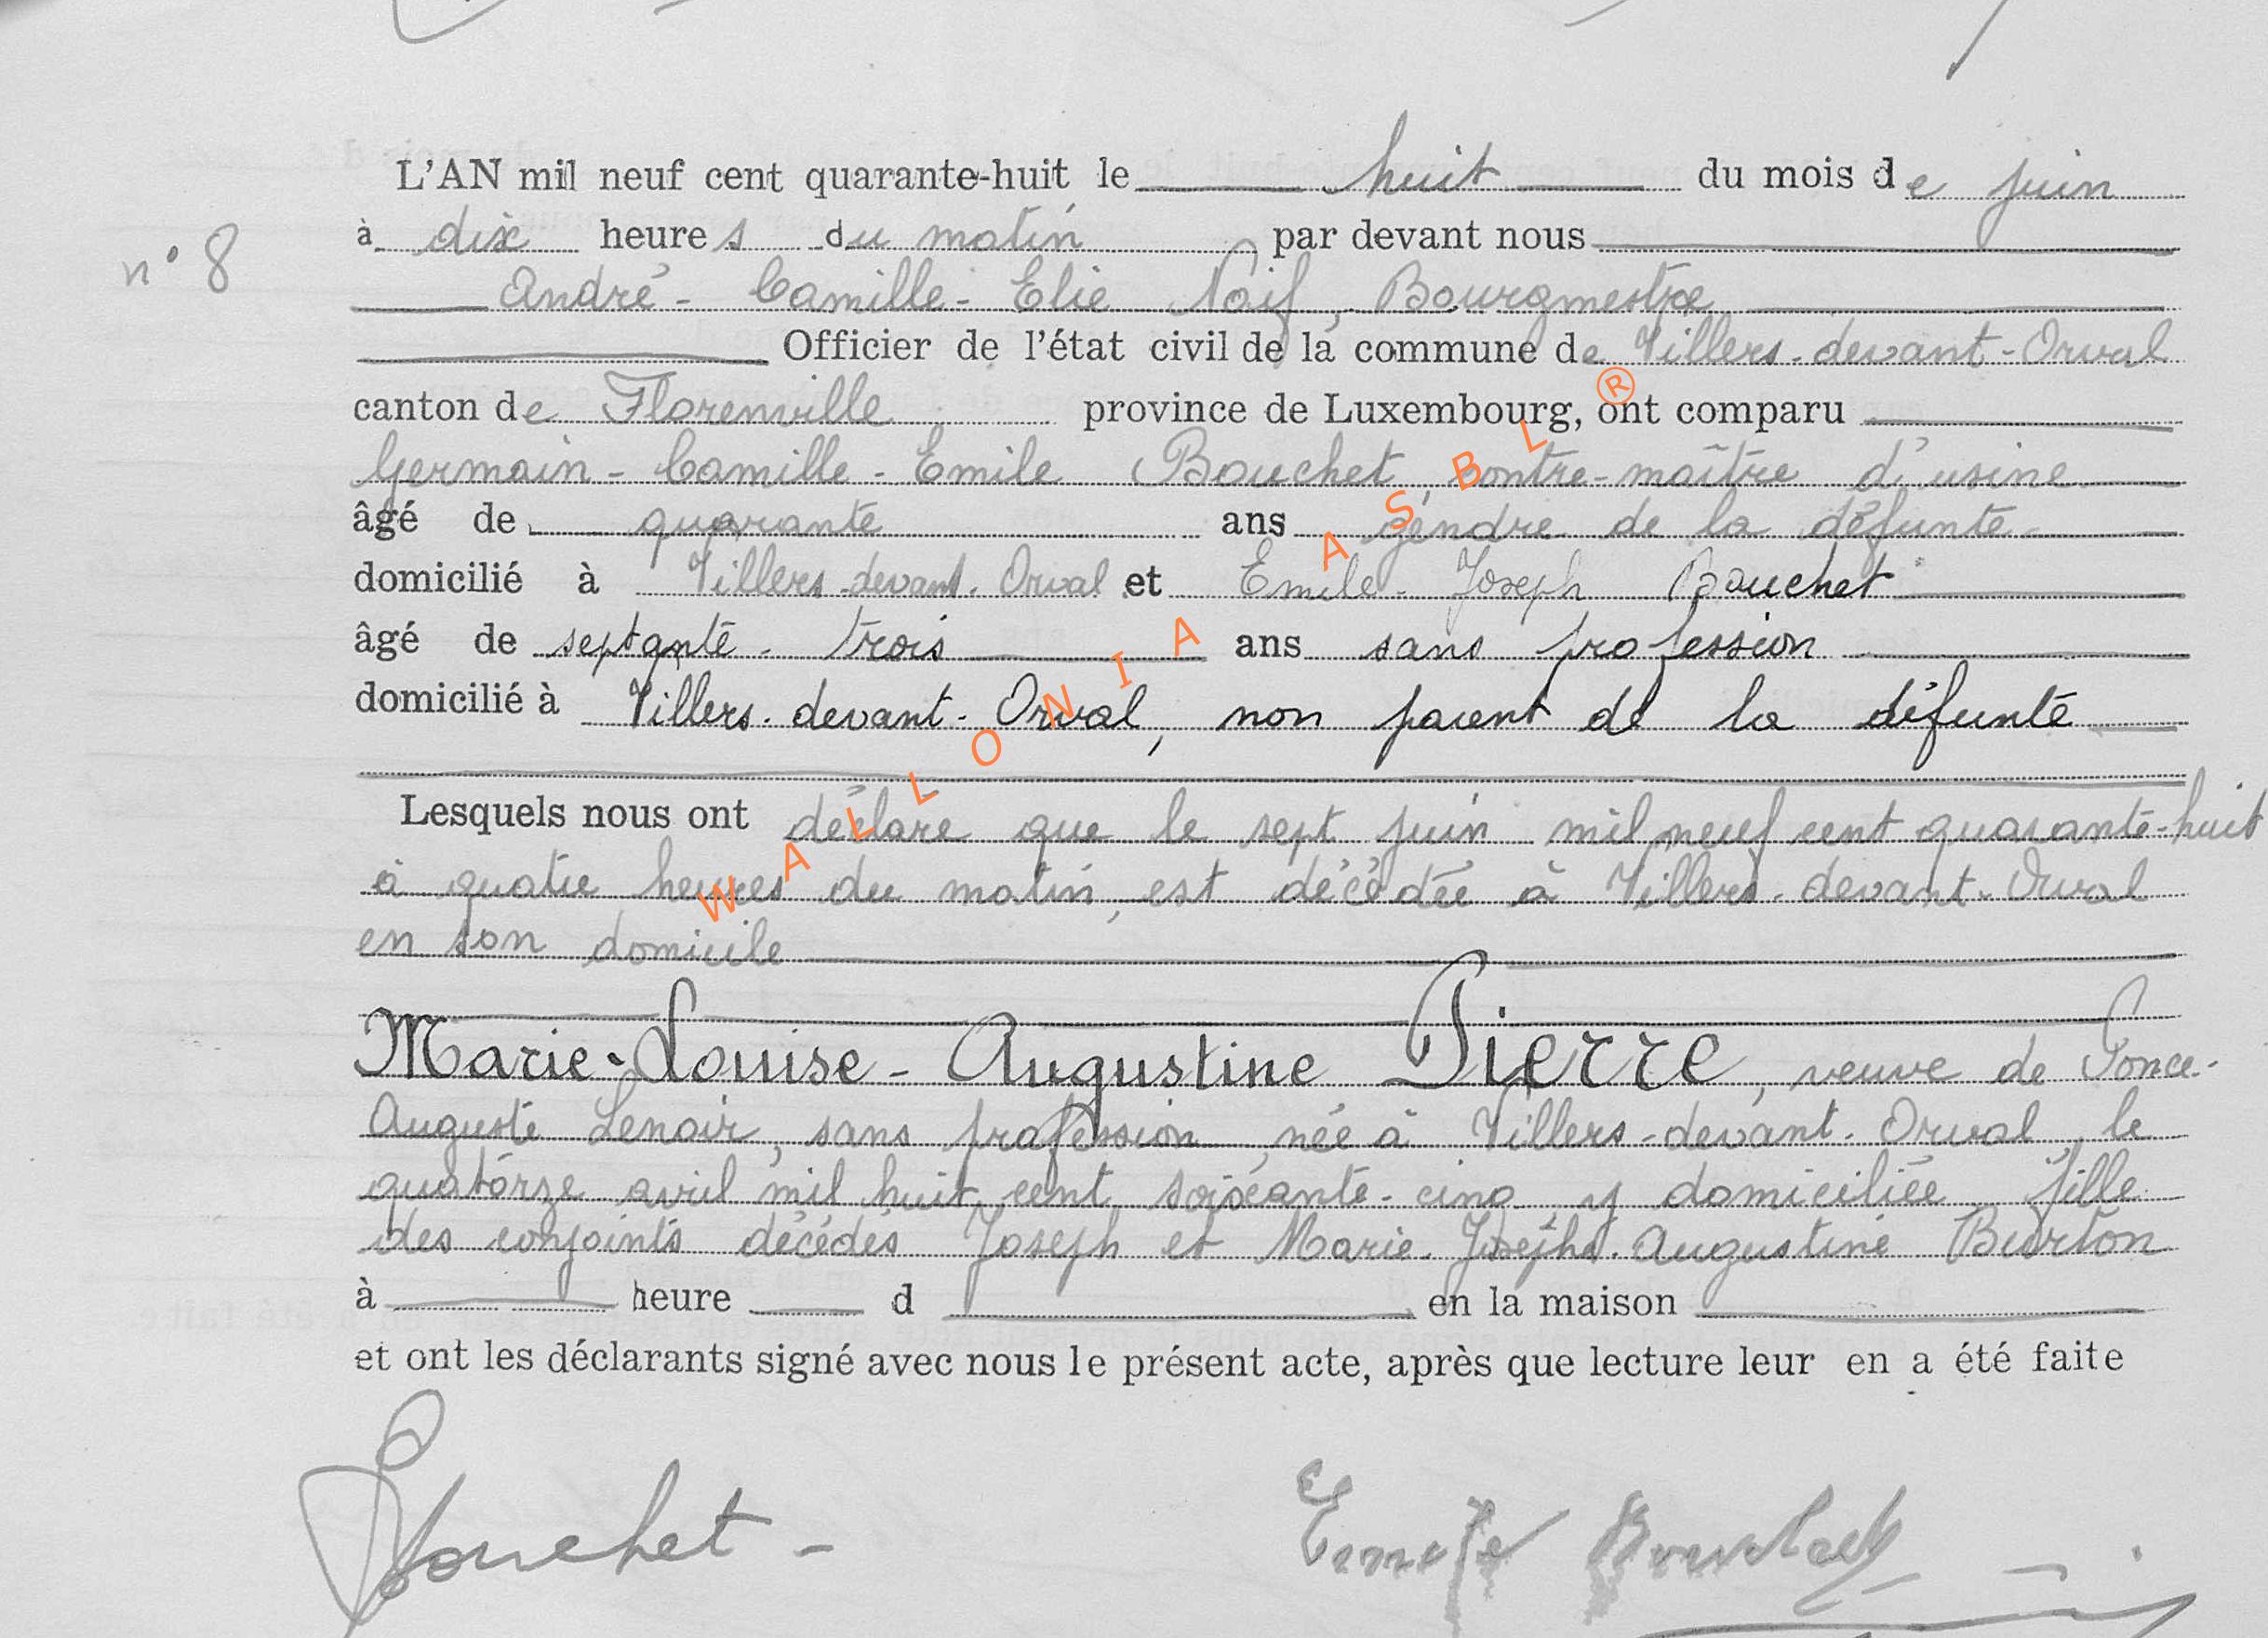 n° 8
L'AN mil neuf cent quarante-huit le huit du mois de juin
à dix heures du matin par devant nous
André - Camille - Elie Naif, Bourgmestre
Officier de l'état civil de la commune de Villers-devant-Orval
canton de Florenville province de Luxembourg, ont comparu
Germain - Camille - Emile Bouchet, contre-maître d'usine
âgé de quarante ans gendre de la défunte
domicilié à Villers-devant-Orval et Emile-Joseph Bouchet
âgé de septante-trois ans sans profession
domicilié à Villers-devant-Orval, non parent de la défunte
Lesquels nous ont déclaré que le sept juin mil neuf cent quarante-huit
à quatre heures du matin, est décédée à Villers-devant-Orval
en son domicile
Marie-Louise-Augustine Pierre, veuve de Ponce-
Auguste Lenoir, sans profession, née à Villers-devant-Orval, le
quatorze avril mil huit cent soixante-cinq, y domiciliée, fille
des conjoints décédés Joseph et Marie-Josèphe-Augustine Burton
à heure d en la maison
et ont les déclarants signé avec nous le présent acte, après que lecture leur en a été faite
Bouchet - Emile Bouchet
WALLONIA ASBL ®